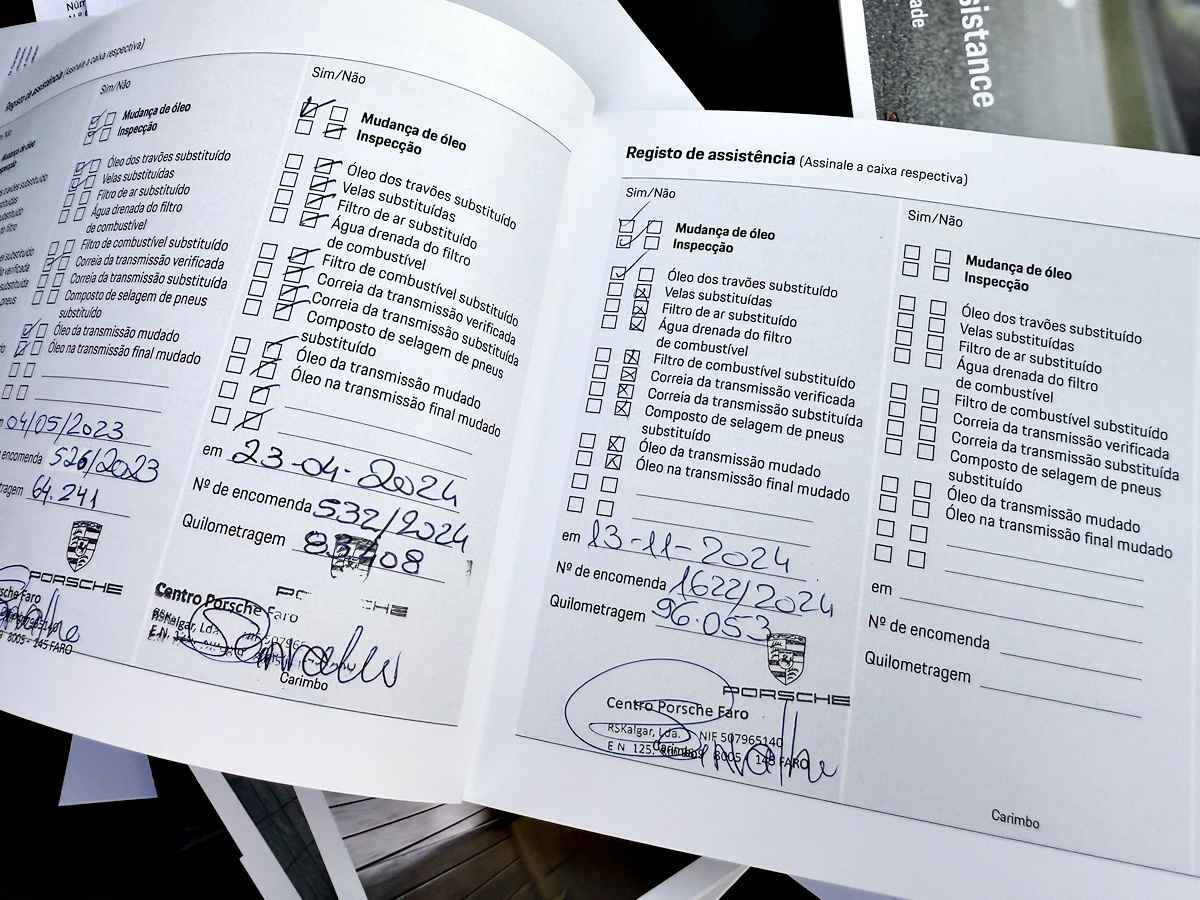 Núm
sistance
ade
Registo de assistência (Assinale a caixa respectiva)
Sim/Não
Mudança de óleo
Inspecção
Óleo dos travões substituído
Velas substituídas
Filtro de ar substituído
Água drenada do filtro
de combustível
Filtro de combustível substituído
Correia da transmissão verificada
Correia da transmissão substituída
Composto de selagem de pneus
substituído
Óleo da transmissão mudado
Óleo na transmissão final mudado
04/05/2023
encomenda 526/2023
64.241
PORSCHE
sche Faro
8005 - 145 FARO
Sim/Não
Mudança de óleo
Inspecção
Óleo dos travões substituído
Velas substituídas
Filtro de ar substituído
Água drenada do filtro
de combustível
Filtro de combustível substituído
Correia da transmissão verificada
Correia da transmissão substituída
Composto de selagem de pneus
substituído
Óleo da transmissão mudado
Óleo na transmissão final mudado
em 23-04-2024
Nº de encomenda 532/2024
Quilometragem
Centro Porsche Faro
RSKalgar, Lda.
E.N.
Carimbo
Registo de assistência (Assinale a caixa respectiva)
Sim/Não
Mudança de óleo
Inspecção
Óleo dos travões substituído
Velas substituídas
Filtro de ar substituído
Água drenada do filtro
de combustível
Filtro de combustível substituído
Correia da transmissão verificada
Correia da transmissão substituída
Composto de selagem de pneus
substituído
Óleo da transmissão mudado
Óleo na transmissão final mudado
em 13-11-2024
Nº de encomenda 1622/2024
Quilometragem 96.053
PORSCHE
Centro Porsche Faro
RSKalgar, Lda. NIF 507965140
E N 125, 8005 - 145 FARO
Carimbo
Sim/Não
Mudança de óleo
Inspecção
Óleo dos travões substituído
Velas substituídas
Filtro de ar substituído
Água drenada do filtro
de combustível
Filtro de combustível substituído
Correia da transmissão verificada
Correia da transmissão substituída
Composto de selagem de pneus
substituído
Óleo da transmissão mudado
Óleo na transmissão final mudado
em
Nº de encomenda
Quilometragem
Carimbo